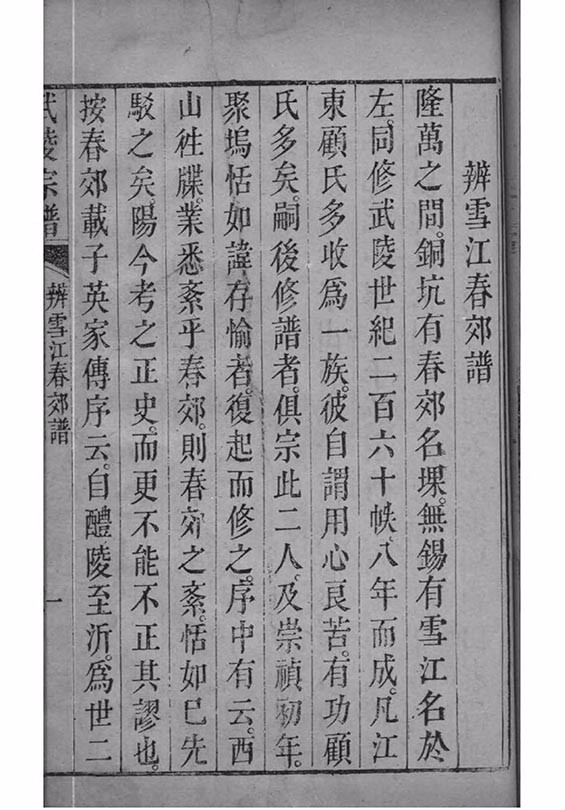 辨雪江春郊譜
隆萬之間。銅坑有春郊名堁。無錫有雪江名於
左。同修武陵世紀二百六十帙。八年而成。凡江
東顧氏多收爲一族。彼自謂用心良苦。有功顧
氏多矣。嗣後修譜者。俱宗此二人。及崇禎初年。
聚塢恬如諱存愉者。復起而修之。序中有云。西
山徃牒。業悉紊乎春郊。則春郊之紊。恬如已先
駁之矣。陽今考之正史。而更不能不正其謬也。
按春郊載子英家傳序云。自醴陵至沂。爲世二
武陵宗譜 辨雪江春郊譜 一